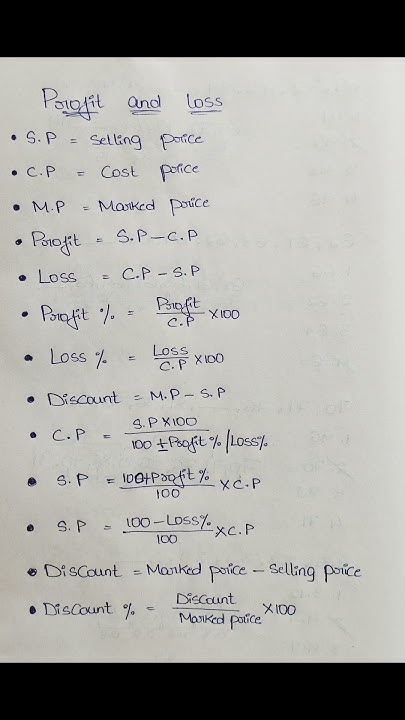 Profit and loss
• S.P = Selling price
• C.P = Cost price
• M.P = Marked price
• Profit = S.P - C.P
• Loss = C.P - S.P
• Profit % = Profit/C.P ×100
• Loss % = Loss/C.P ×100
• Discount = M.P - S.P
• C.P = S.P×100/100 ± Profit % /Loss%
• S.P = 100+Profit %/100 × C.P
• S.P = 100-Loss%/100 × C.P
• Discount = Marked price - Selling price
• Discount % = Discount/Marked price ×100